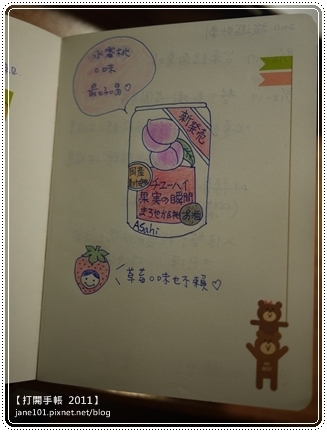 水蜜桃
口味
最好喝♡
新発売
国産
果汁使用
チューハイ
果実の瞬間
まろやか白桃
お酒
Asahi
草莓口味也不賴♡
【打開手帳 2011】
jane101.pixnet.net/blog